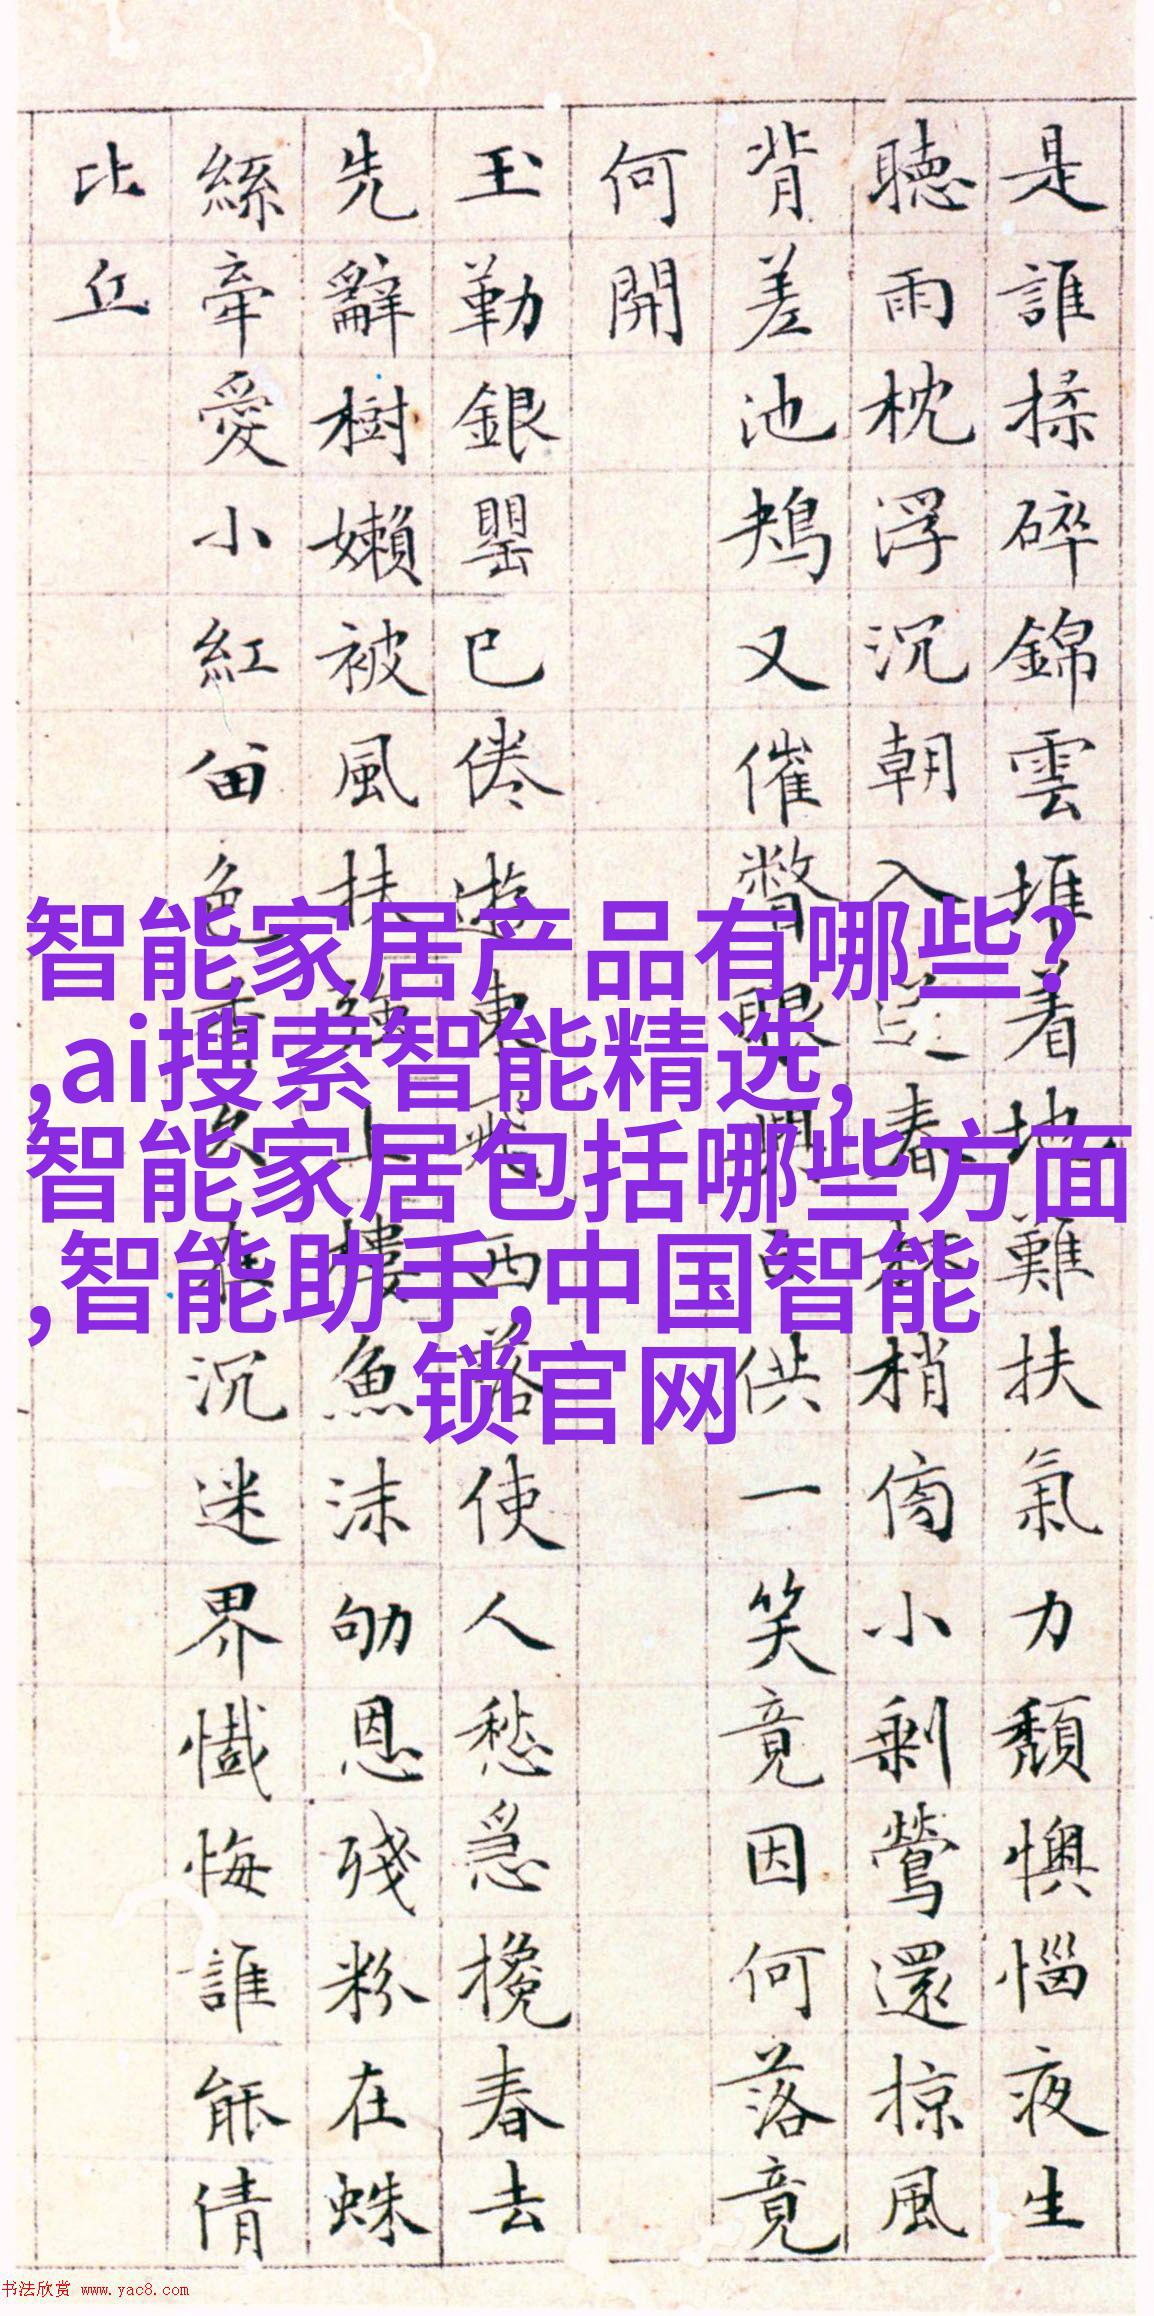 是誰揉碎錦雲堆着地難扶氣力頹懊惱夜生
聽雨枕浮沉朝入送春梢傍小剩鶯還掠風
背差池鳺又催瞥眼供一笑竟因何落竟
何開
玉勒銀罌已倦遊東飛西落使人愁急攙春去
先辭樹嬾被風扶強上樓魚沫劬恩殘粉在蛛
絲牽愛小紅留色香久在沉迷界懺悔誰能倩
比丘
智能家居产品有哪些?
,ai搜索智能精选,
智能家居包括哪些方面
,智能助手,中国智能
锁官网
书法欣赏 www.yac8.com